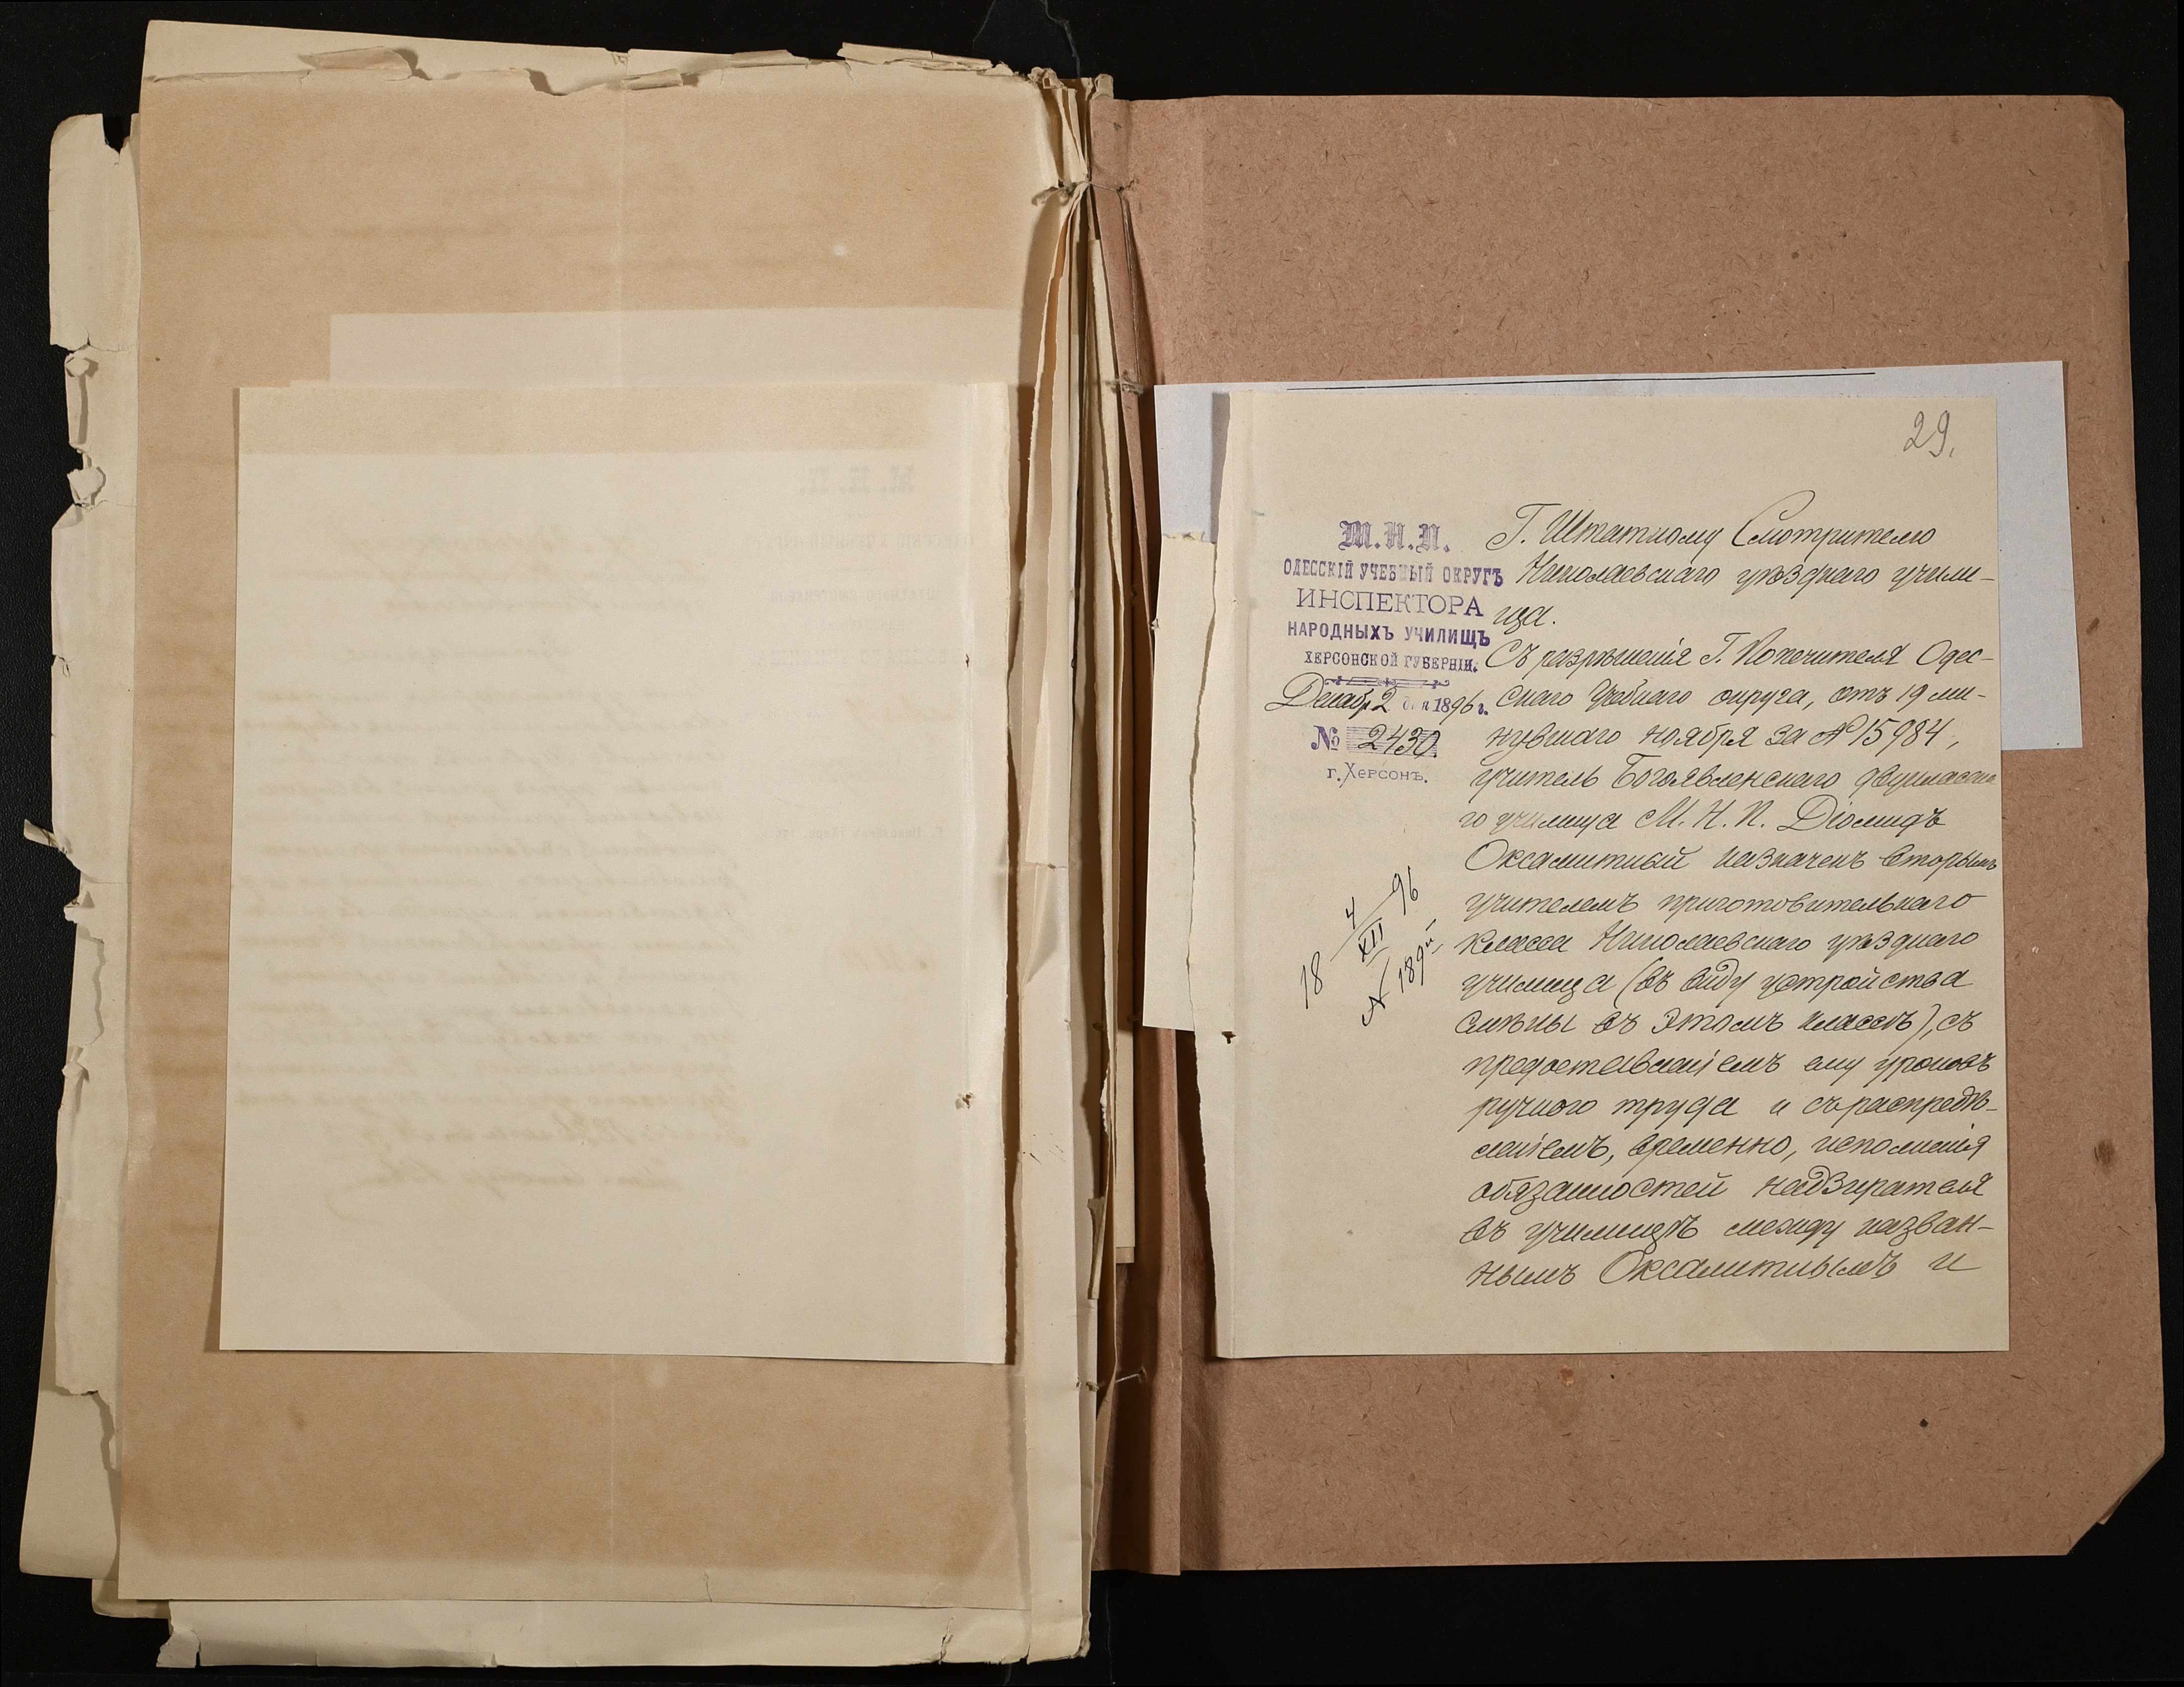 29.
М.Н.П.
ОДЕССКІЙ УЧЕБНЫЙ ОКРУГЪ
ИНСПЕКТОРА
НАРОДНЫХЪ УЧИЛИЩЪ
ХЕРСОНСКОЙ ГУБЕРНІИ.
Декабр 2 дня 1896 г.
№ 2430
г. Херсонъ.
18 4/XII 96
№ 189
Г. Штатному Смотрителю
Николаевскаго уѣзднаго учили-
ща.
Съ разрѣшенія Г. Попечителя Одес-
скаго Учебнаго округа, отъ 19 ми-
нувшаго ноября за № 15984,
учитель Богоявленскаго двуклассна
го училища М. Н. П. Діомидъ
Оксамитный назначенъ вторымъ
учителемъ приготовительнаго
класса Николаевскаго уѣзднаго
училища (въ виду устройства
смѣны въ этомъ классѣ), съ
предоставленіемъ ему уроковъ
ручного труда и съ распредѣ-
леніемъ, временно, исполненія
обязанностей надзирателя
въ училищѣ между назван-
нымъ Оксамитнымъ и